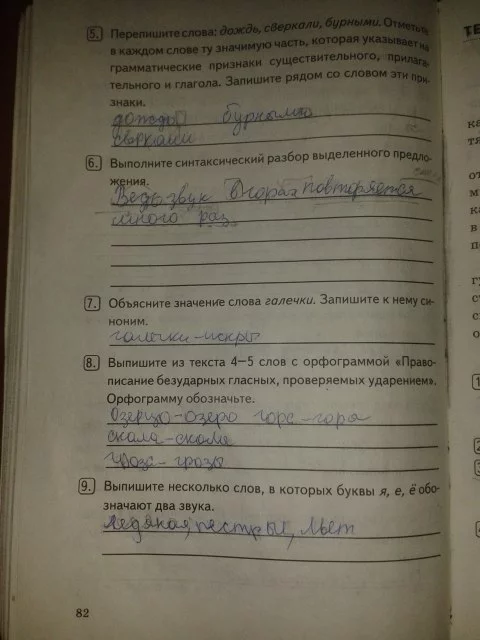 5. Перепишите слова: дождь, сверкали, бурными. Отметьте
в каждом слове ту значимую часть, которая указывает на
грамматические признаки существительного, прилага-
тельного и глагола. Запишите рядом со словом эти при-
знаки.
дождь бурными
сверкали
6. Выполните синтаксический разбор выделенного предло-
жения.
Ведь звук в горах повторяется
много раз
7. Объясните значение слова галечки. Запишите к нему си-
ноним.
галечки-
8. Выпишите из текста 4–5 слов с орфограммой «Право-
писание безударных гласных, проверяемых ударением».
Орфограмму обозначьте.
Озерцо-озеро горе-гора
скала-скалы
гроза-грозы
9. Выпишите несколько слов, в которых буквы я, е, ё обо-
значают два звука.
Ледяная, пестрые, льет
82